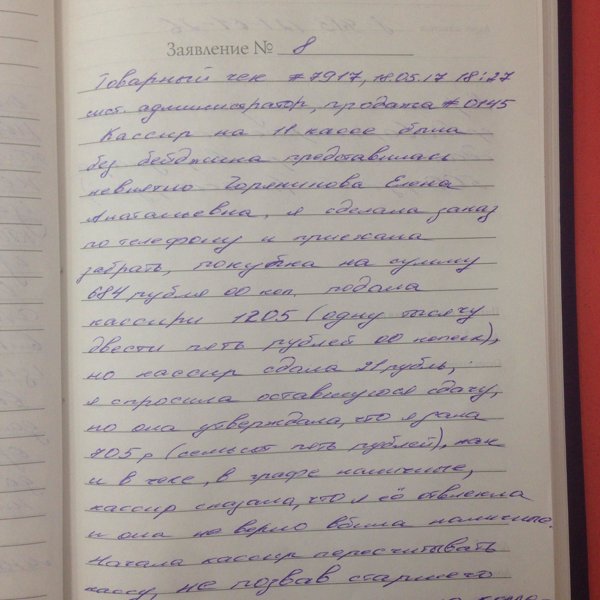 Заявление № 8
Товарный чек #7917, 18.05.17 18:27
сист. администратор, продажа #0145
Кассир на 11 кассе была
без бейджика представилась
невнятно Горяйнова Елена
Анатольевна, я сделала заказ
по телефону и приехала
забрать, покупка на сумму
684 рубля 00 коп. подала
кассиру 1205 (одну тысячу
двести пять рублей 00 копеек),
но кассир сдала 21 рубль,
я спросила оставшуюся сдачу,
но она утверждала, что я дала
705 р (семьсот пять рублей), как
и в чеке, в графе наличные,
кассир сказала, что я её отвлекла
и она не верно вбила наличные.
Начала кассир пересчитывать
кассу, не позвав старшего